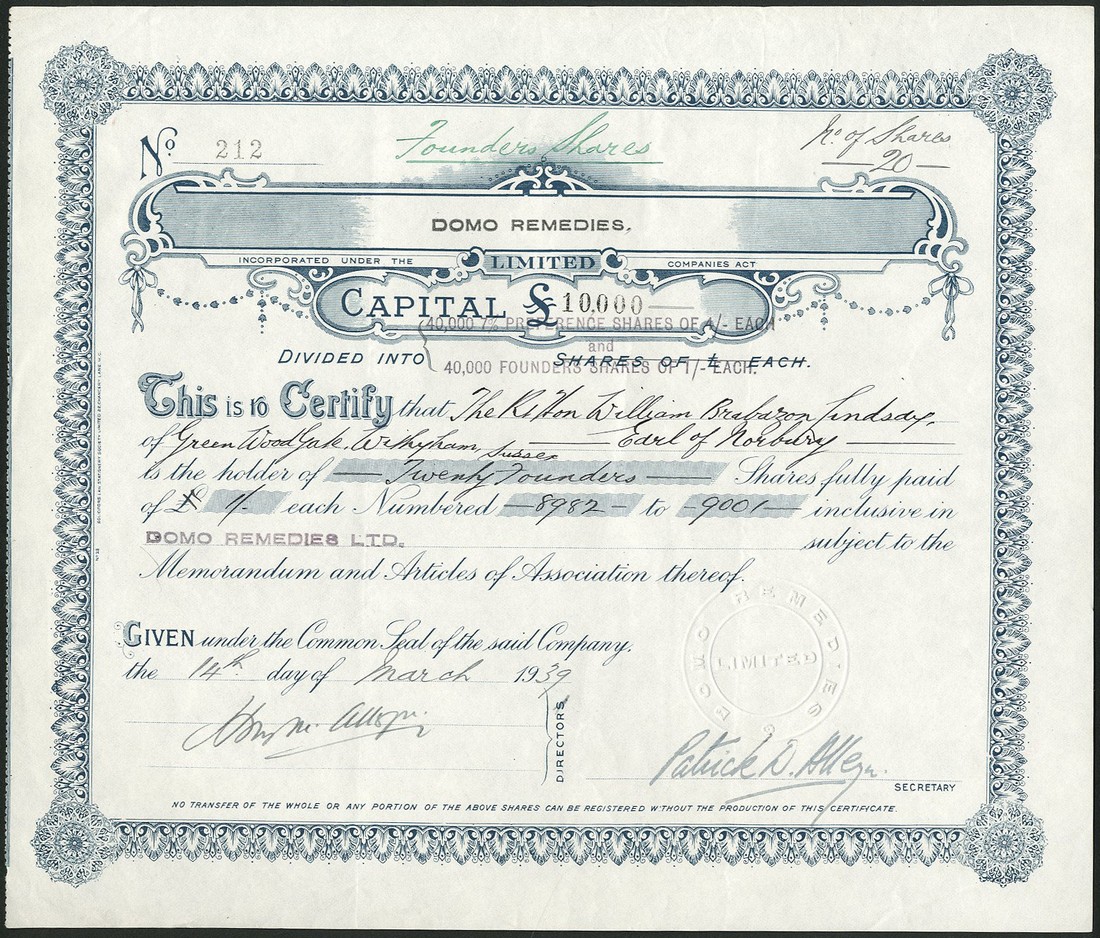 No 212
Founders Shares
No of Shares
20
DOMO REMEDIES,
INCORPORATED UNDER THE LIMITED COMPANIES ACT
CAPITAL £ 10,000
40,000 7% PREFERENCE SHARES OF 4/- EACH
and
DIVIDED INTO SHARES OF £ EACH.
40,000 FOUNDERS SHARES OF 1/- EACH.
This is to Certify that The Rt Hon William Brabazon Lindsay,
of Green Wood Gate, Withyham, Sussex Earl of Norbury
Is the holder of Twenty Founders Shares fully paid
of £ 1/- each Numbered 8982 to 9001 inclusive in
DOMO REMEDIES LTD. subject to the
Memorandum and Articles of Association thereof.
DOMO REMEDIES
LIMITED
GIVEN under the Common Seal of the said Company,
the 14th day of March 1939
DIRECTORS
Patrick D.
SECRETARY
NO TRANSFER OF THE WHOLE OR ANY PORTION OF THE ABOVE SHARES CAN BE REGISTERED WITHOUT THE PRODUCTION OF THIS CERTIFICATE.